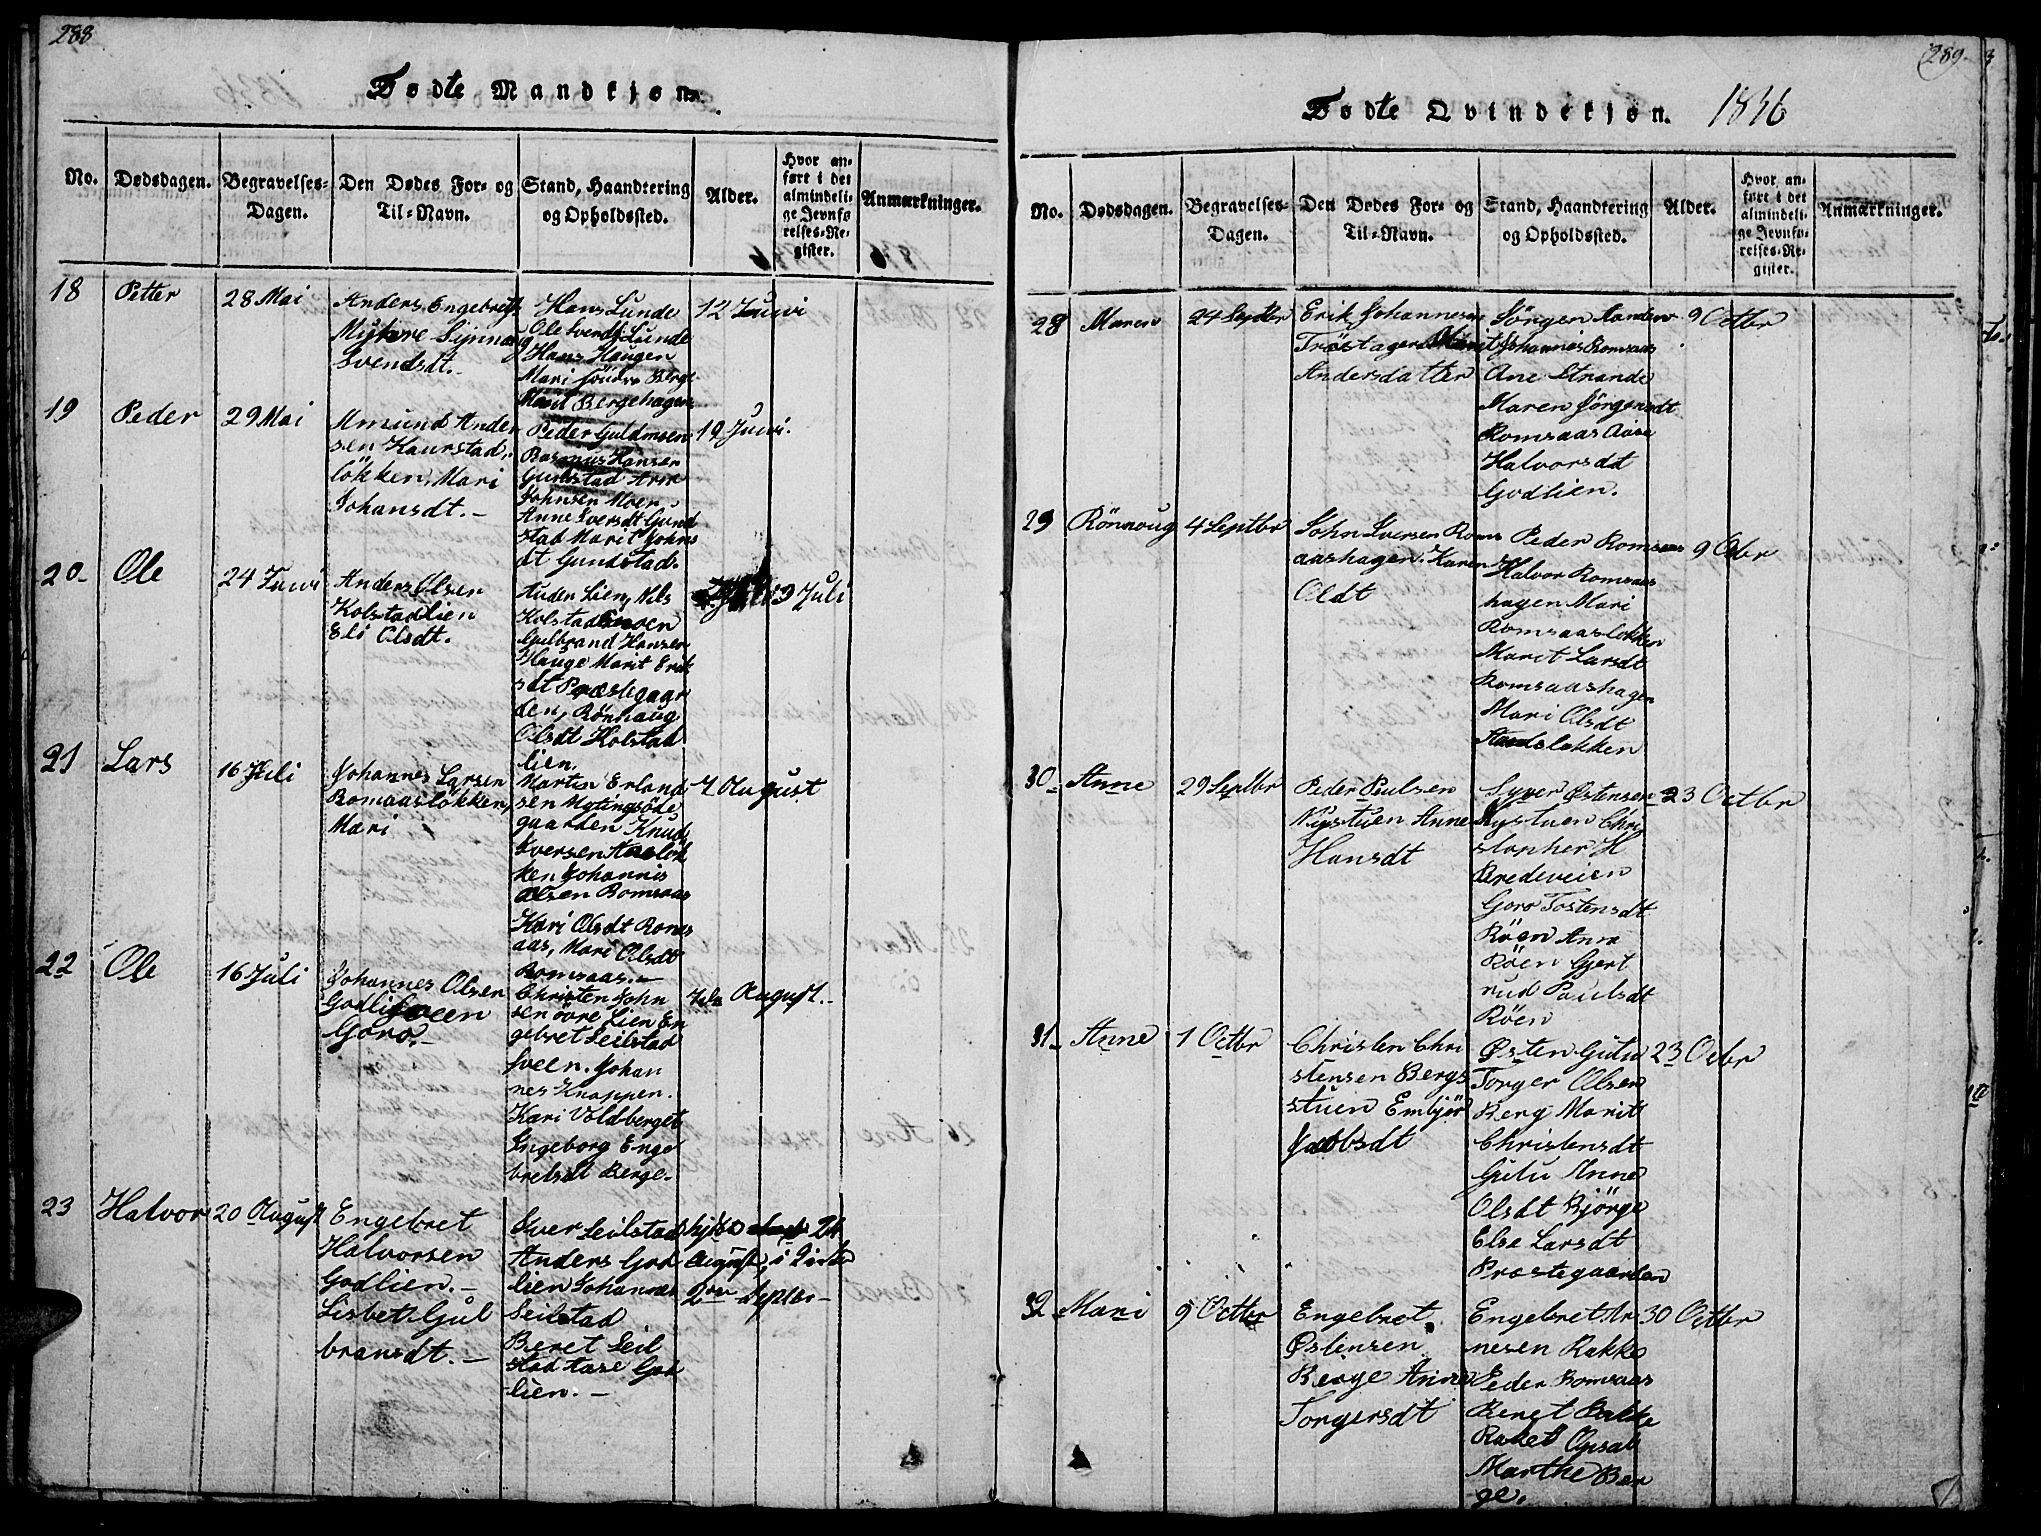 288
Fødte Mandkjøn.
No.
Dødsdagen.
Begravelses-
Dagen.
Den Dødes For- og
Til-Navn.
Stand, Haandtering
og Opholdssted.
Alder.
Hvor an-
ført i det
almindeli-
ge Jevnfø
relses-Re-
gister.
Anmærkninger.
18 Petter 28 Mai
Anders Engebrets
Svendsdt.-
Hans Lunde
Ole Svends Lunde
Hans Haugen
Mari søndre Berge
Marit Bergehagen
12 Juni
19 Peder 29 Mai
Amund Ander
sen Kaurstad
løkken, Mari
Johansdt.-
Peder Guldmoen
Rasmus Hansen
Gunstad Arne
Johnsen Moen
Anne Iversdt Gund
stad Marit Johns
dt Gundstad.
19 Juni.
20- Ole 24 Juni
Anders Olsen
Kolstadlien
Eli Olsdt.
Ander Lien, Nils
Kolstadmoen
Gulbrand Hansen
Hauge Marit Erik
sdt Præstegaar
den, Rønnaug
Olsdt Kolstad
lien.
3 Juli
21 Lars 16 Juli
Johannes Larsen
Romaasløkken,
Mari
Martin Erland
sen Mytingsøde
gaarden Knud
Iversen Aasløk
ken Johannis
Olsen Romsaas
Kari Olsdt Roms
aas, Mari Olsdt
Romsaas.-
7 August
22 Ole 16 Juli
Johannes Olsen
Godlisveen
Goro.-
Christen John
sen øvre Lien En
gebret Seilstad
sveen. Johan
nes Knappen.
Kari Voldberget
Ingeborg Enge
bretsdt Berge.
7de August.-
23 Halvor 20 August
Engebret
Halvorsen
Godlien.-
Lisbet Gul
bransdt.-
Iver Seilstad
Anders God
lien Johannes
Seilstad
Beret Seil
stad Aase God
lien.-
hjdbt 24
August, i Kirke
Septbr-
289
Fødte Qvindekjøn. 1836
No.
Dødsdagen.
Begravelses-
Dagen.
Den Dødes For- og
Til-Navn.
Stand, Haandtering
og Opholdssted.
Alder.
Hvor an-
ført i det
almindeli-
ge Jevnfø-
relses-Re-
gister.
Anmærkninger.
28 Maren 24 Septbr
Erik Johannesen
Trøstager Marit
Andersdatter
Jørgen Sanden
Johannis Romsaas
Ane Strande
Maren Jørgensdt
Romsaas Aase
Halvorsdt
Godlien.
9 Octbr
29 Rønnoug 4 Septbr
John Iversen Roms
aashagen. Karen
Oldt
Peder Romsaas
Halvor Romsaas
hagen Mari
Romsaasløkken
Marit Larsdt
Romsaashagen
Mari Olsdt
9 Octbr
30- Anne 29 Septbr
Peder Paulsen
Nystuen Anne
Hansdt
Syver Østensen
Nystuen Chri
stopher H
Bredeveien
Goro Tostensdt
Røen Anne
Røen Gjert
rud Paulsdt
Røen
23 Octbr
31- Anne 1 Octbr
Christen Chri
stensen Bergs
stuen Embjør
Jacobsdt
Østen Gutu
Torger Olsen
Berg Marit
Christensdt
Gutu Anne
Olsdt Bjørge
Else Larsdt
Præstegaarden
23 Octbr
32- Mari 9 Octbr
Engebret
Østensen
Berge Anne
Torgersdt
Engebret Ar
nesen Bakke
Peder Romsaas
Beret Bakke
Raket Opsal
Marthe Ber
ge.
30 Octbr